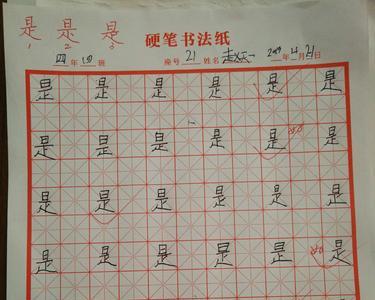 是 是 是
1 2 3
硬笔书法纸
四年四班 座号 21 姓名 月 21日
是 是 是 是 是 是
是 是 是 是 是 是
是 是 是 是 是 是
是 是 是 是 是 是